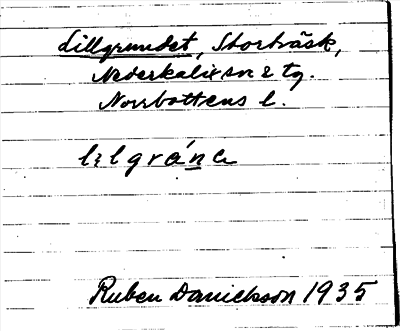 Lillgrundet, Storträsk,
Nederkalix sn & tg.
Norrbottens l.
Ruben Danielsson 1935